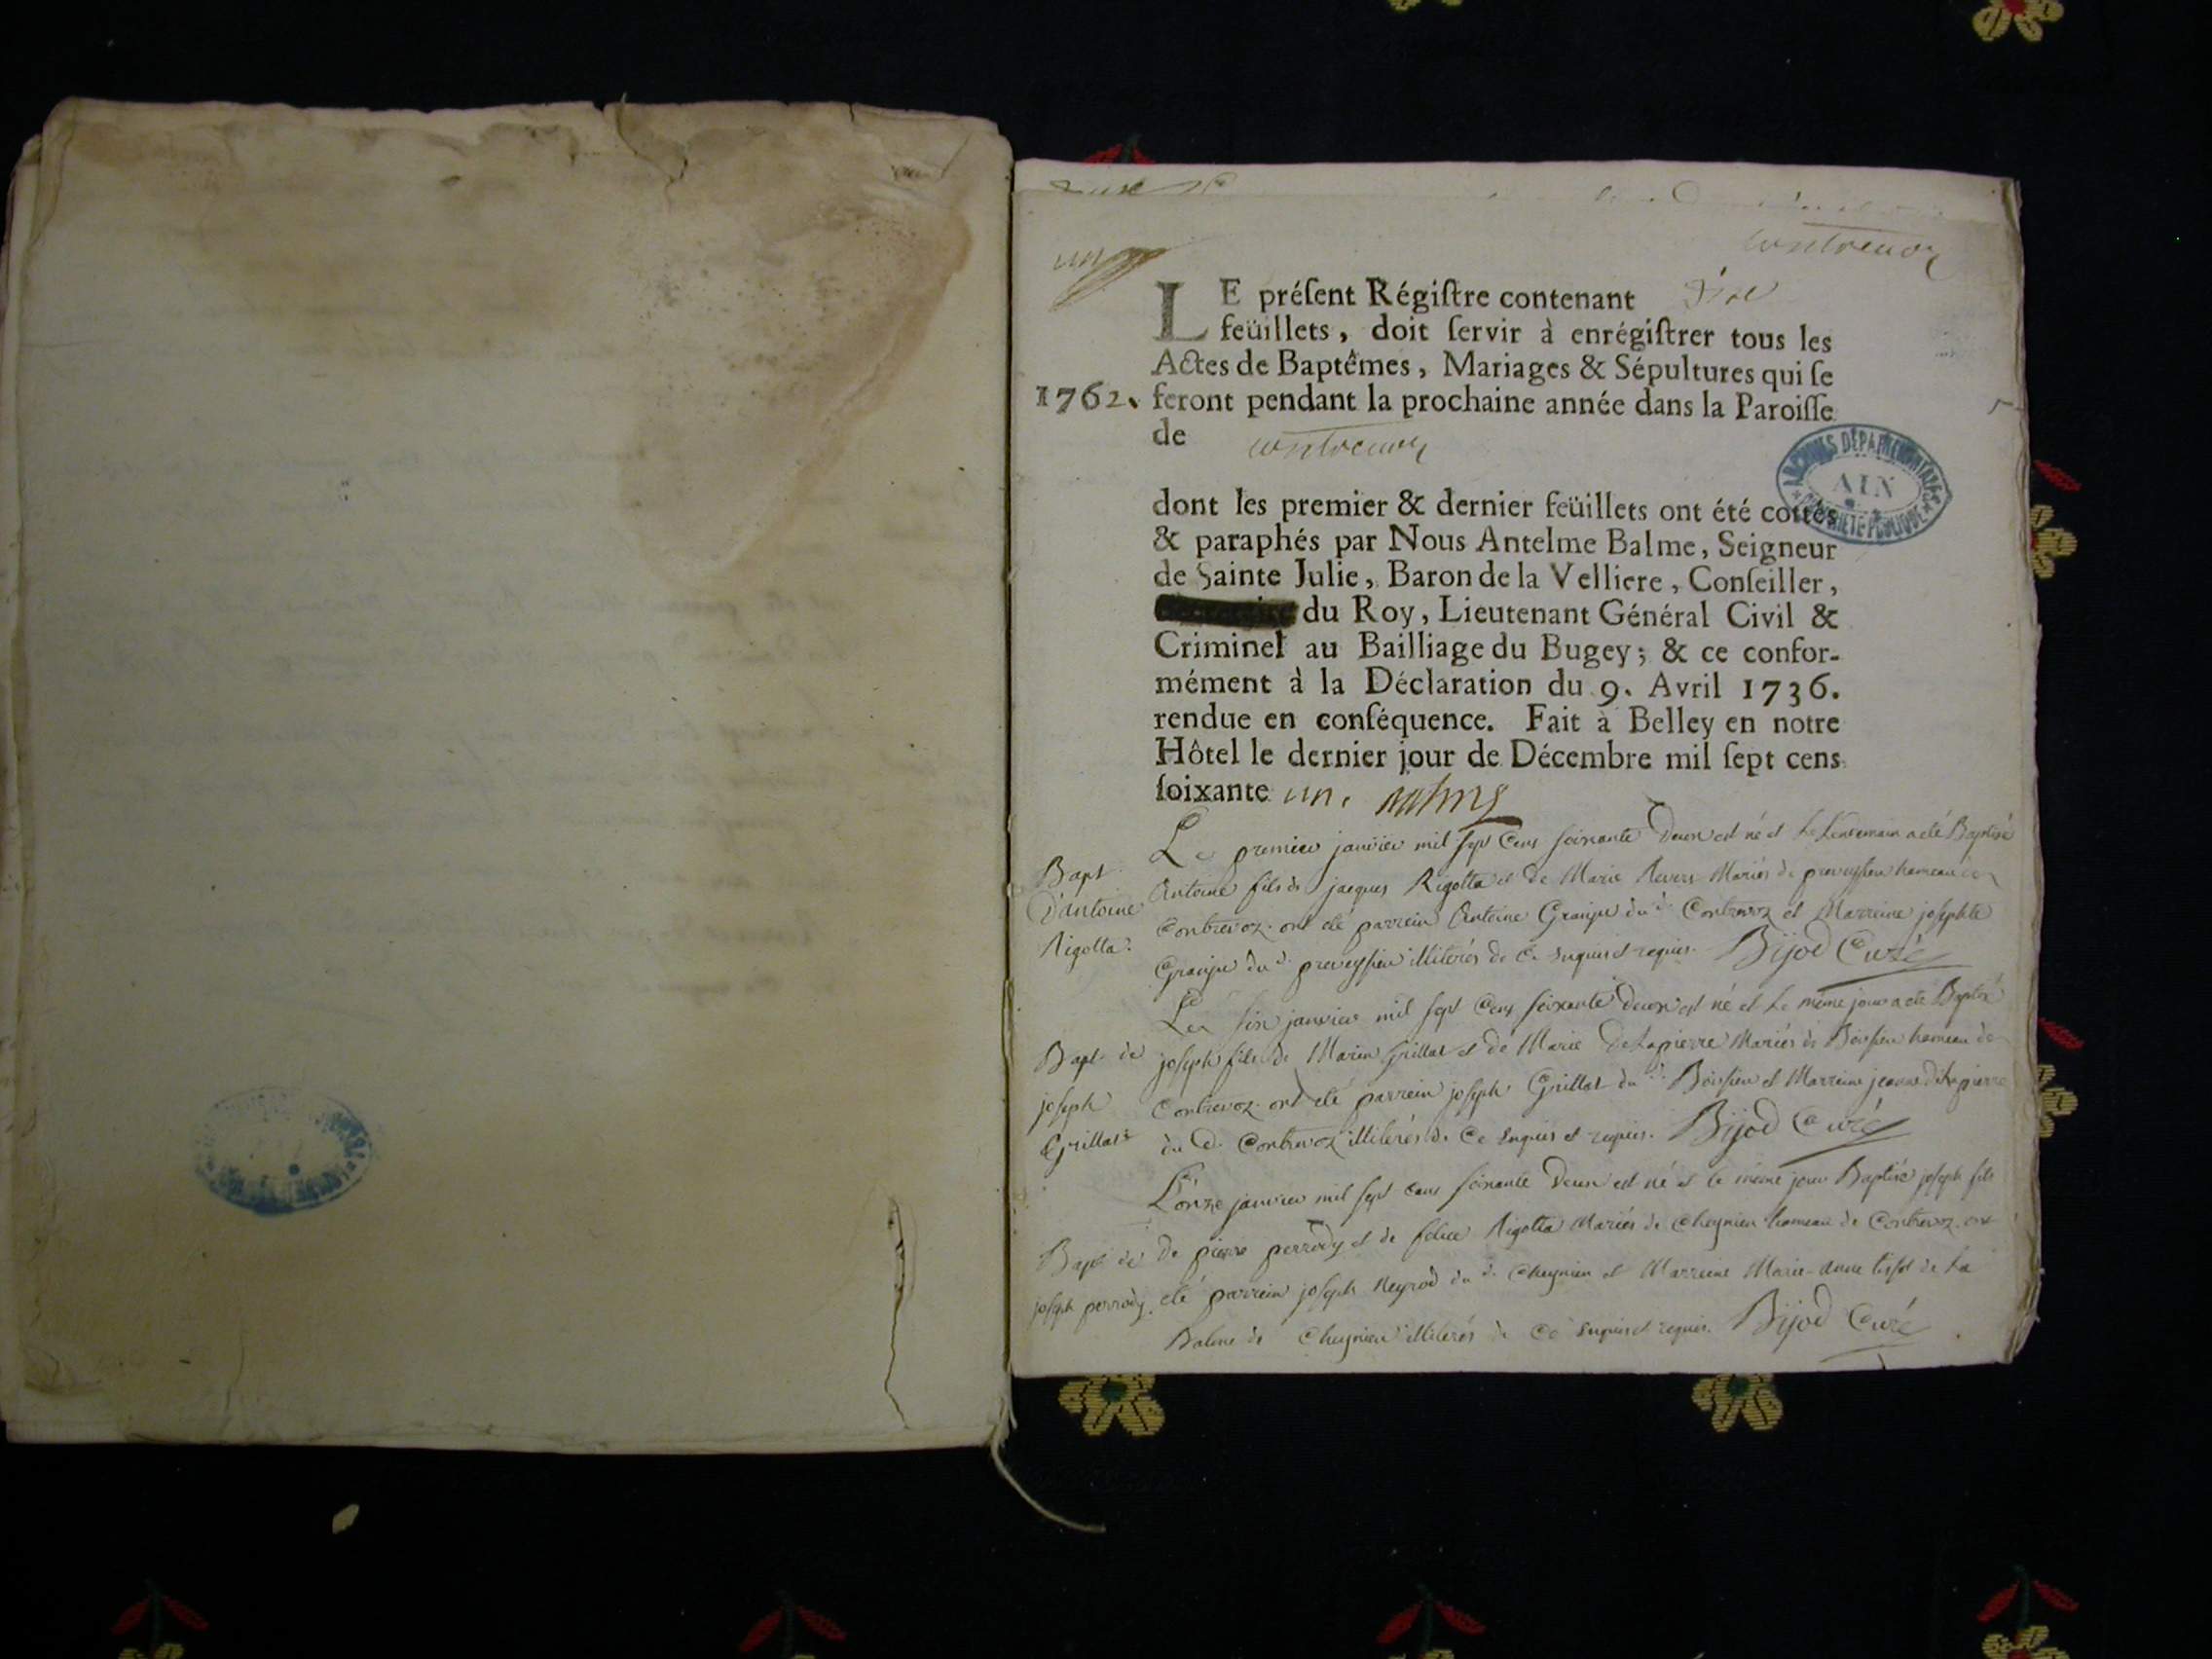 un
contrevoz
LE préſent Régiſtre contenant dix
feüillets, doit ſervir à enrégiſtrer tous les
Actes de Baptêmes, Mariages & Sépultures qui ſe
1762. feront pendant la prochaine année dans la Paroiſſe
de contrevoz
dont les premier & dernier feüillets ont été cottés
& paraphés par Nous Antelme Balme, Seigneur
de Sainte Julie, Baron de la Velliere, Conſeiller,
du Roy, Lieutenant Général Civil &
Criminel au Bailliage du Bugey; & ce confor-
mément à la Déclaration du 9. Avril 1736.
rendue en conſéquence. Fait à Belley en notre
Hôtel le dernier jour de Décembre mil ſept cens
ſoixante un. Balme
ARCHIVES DÉPARTEMENTALES
AIN
PROPRIÉTÉ PUBLIQUE
Bapt
d'antoine
Rigotta.
Le premier janvier mil sept Cens soixante Deux est né et Le Lendemain a eté Baptisé
Antoine fils de jacques Rigotta et De Marie Revers Mariés de preveyssieu hameau de
Contrevoz. ont eté parrein Antoine Grange du d. Contrevoz et Marreine josephte
Grange du d. preveyssieu illiterés de Ce Enquis et requis. Bijod Curé
Bapt de
joseph
Grillat
Le six janvier mil sept Cens soixante deux est né et Le même jour a eté Baptisé
joseph fils de Marin Grillat et de Marie Delapierre Mariés de Boissieu hameau de
Contrevoz. ont eté parrein joseph Grillat du d. Boissieu et Marreine jeanne delapierre
du d. Contrevoz illiterés de Ce Enquis et requis. Bijod Curé
Bapt de
joseph perrody.
L'onze janvier mil sept cens soixante Deux est né et le même jour Baptisé joseph fils
De pierre perrody et de felice Rigotta Mariés de Cheynieu hameau de Contrevoz. ont
eté parrein joseph Neyrod du d. Cheynieu et Marreine Marie-Anne tissot de La
Balme de Cheynieu illiterés de Ce Enquis et requis. Bijod Curé